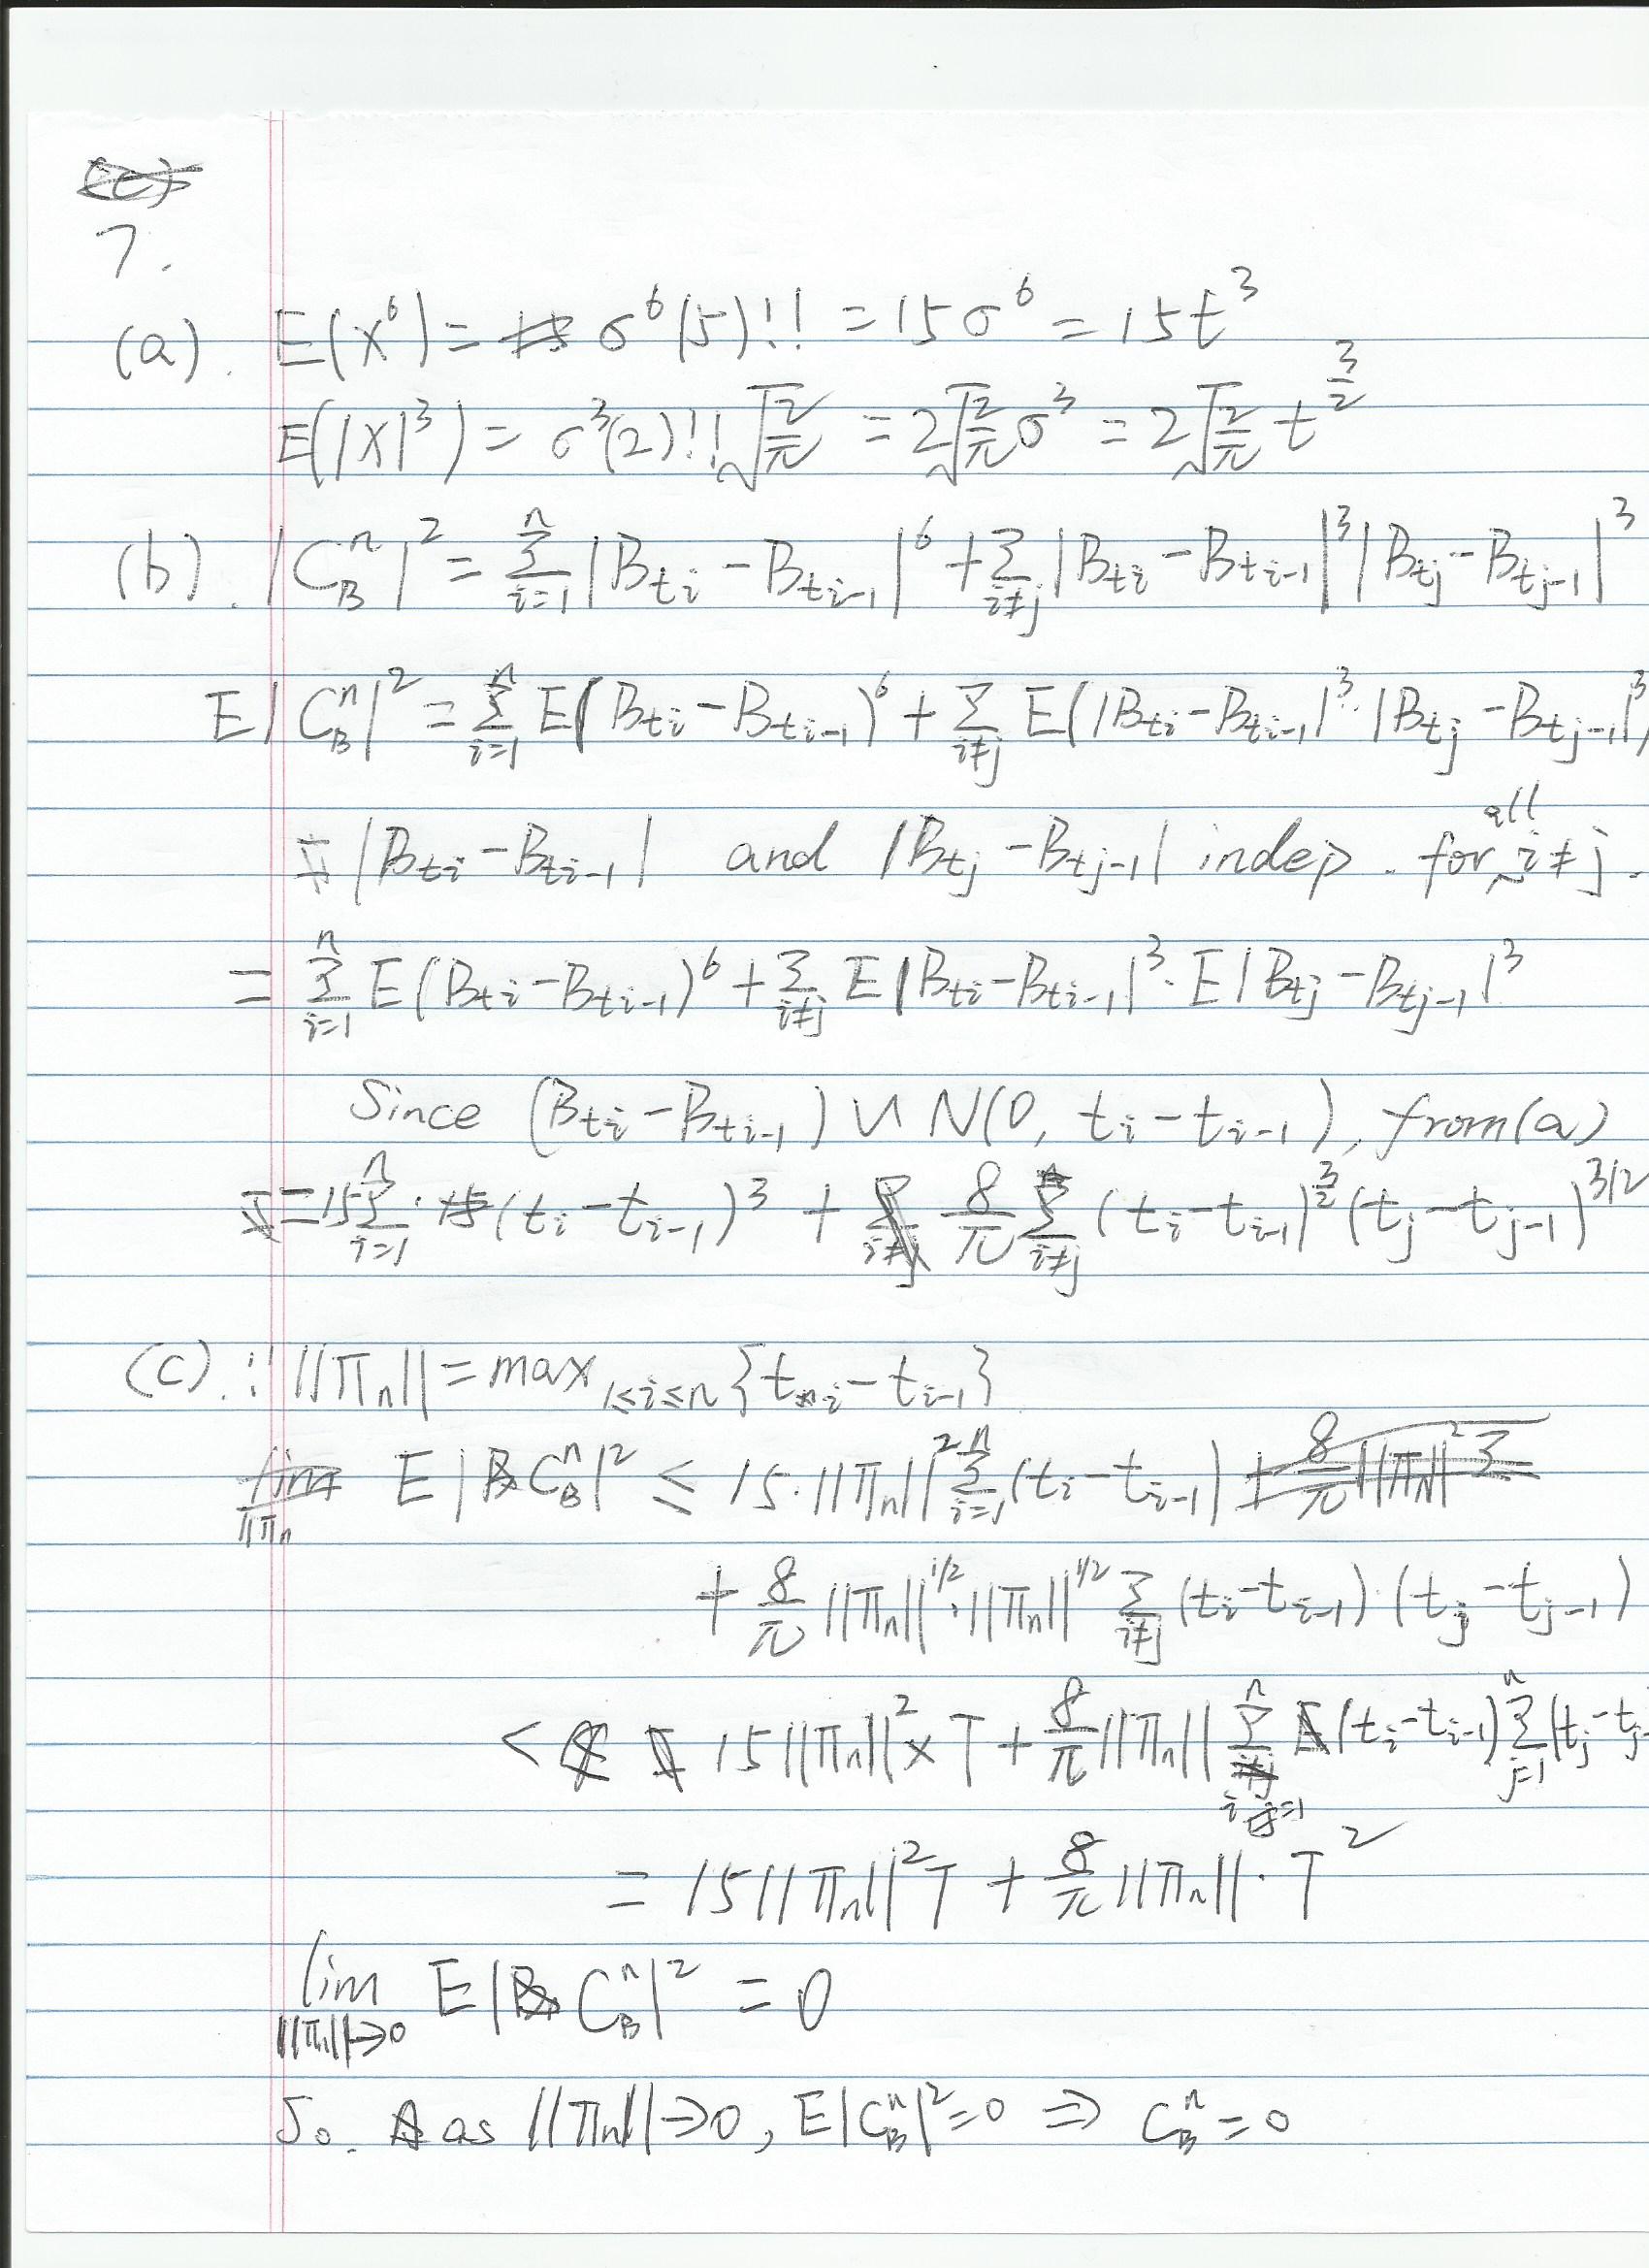 7.
(a). E(X⁶) = σ⁶(5)!! = 15σ⁶ = 15t³
E(|X|³) = σ³(2)!!√(2/π) = 2√(2/π)σ³ = 2√(2/π) t^(3/2)
(b). |C_B^n|² = Σ_{i=1}^n |B_{t_i} - B_{t_{i-1}}|⁶ + Σ_{i≠j} |B_{t_i} - B_{t_{i-1}}|³ |B_{t_j} - B_{t_{j-1}}|³
E|C_B^n|² = Σ_{i=1}^n E(B_{t_i} - B_{t_{i-1}})⁶ + Σ_{i≠j} E(|B_{t_i} - B_{t_{i-1}}|³·|B_{t_j} - B_{t_{j-1}}|³)
|B_{t_i} - B_{t_{i-1}}| and |B_{t_j} - B_{t_{j-1}}| indep. for all i≠j.
= Σ_{i=1}^n E(B_{t_i} - B_{t_{i-1}})⁶ + Σ_{i≠j} E|B_{t_i} - B_{t_{i-1}}|³·E|B_{t_j} - B_{t_{j-1}}|³
Since (B_{t_i} - B_{t_{i-1}}) ∽ N(0, t_i - t_{i-1}), from (a)
= 15Σ_{i=1}^n (t_i - t_{i-1})³ + 8/π Σ_{i≠j} (t_i - t_{i-1})^(3/2) (t_j - t_{j-1})^(3/2)
(c). ∵ ||Π_n|| = max_{1≤i≤n} {t_i - t_{i-1}}
E|C_B^n|² ≤ 15·||Π_n||² Σ_{i=1}^n (t_i - t_{i-1})
+ 8/π ||Π_n||^(1/2)·||Π_n||^(1/2) Σ_{i≠j} (t_i - t_{i-1})·(t_j - t_{j-1})
< 15||Π_n||² × T + 8/π ||Π_n|| Σ_{i=1}^n (t_i - t_{i-1}) Σ_{j=1}^n (t_j - t_{j-
= 15||Π_n||² T + 8/π ||Π_n||·T²
lim_{||Π_n||→0} E|C_B^n|² = 0
So. as ||Π_n||→0, E|C_B^n|² = 0 ⇒ C_B^n = 0